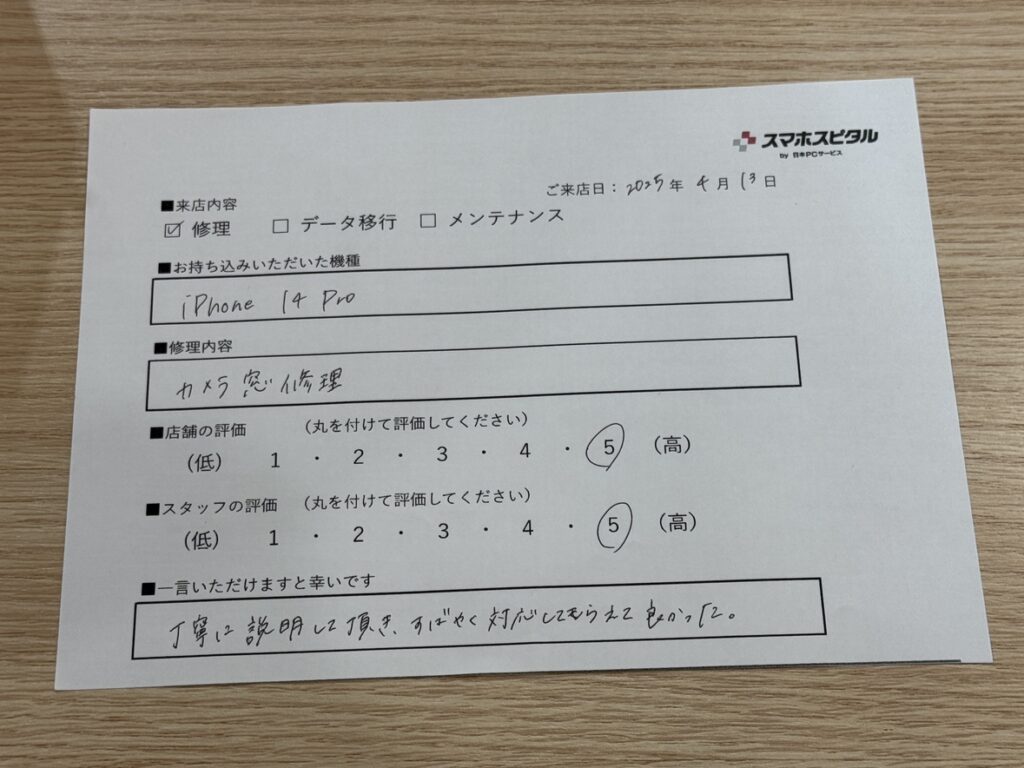 スマホスピタル
by 日本PCサービス
ご来店日：2025年 4月 13日
■来店内容
☑ 修理 □ データ移行 □ メンテナンス
■お持ち込みいただいた機種
iPhone 14 Pro
■修理内容
カメラ窓修理
■店舗の評価 （丸を付けて評価してください）
（低） 1 ・ 2 ・ 3 ・ 4 ・ 5 （高）
■スタッフの評価 （丸を付けて評価してください）
（低） 1 ・ 2 ・ 3 ・ 4 ・ 5 （高）
■一言いただけますと幸いです
丁寧に説明して頂き、すばやく対応してもらえて良かった。